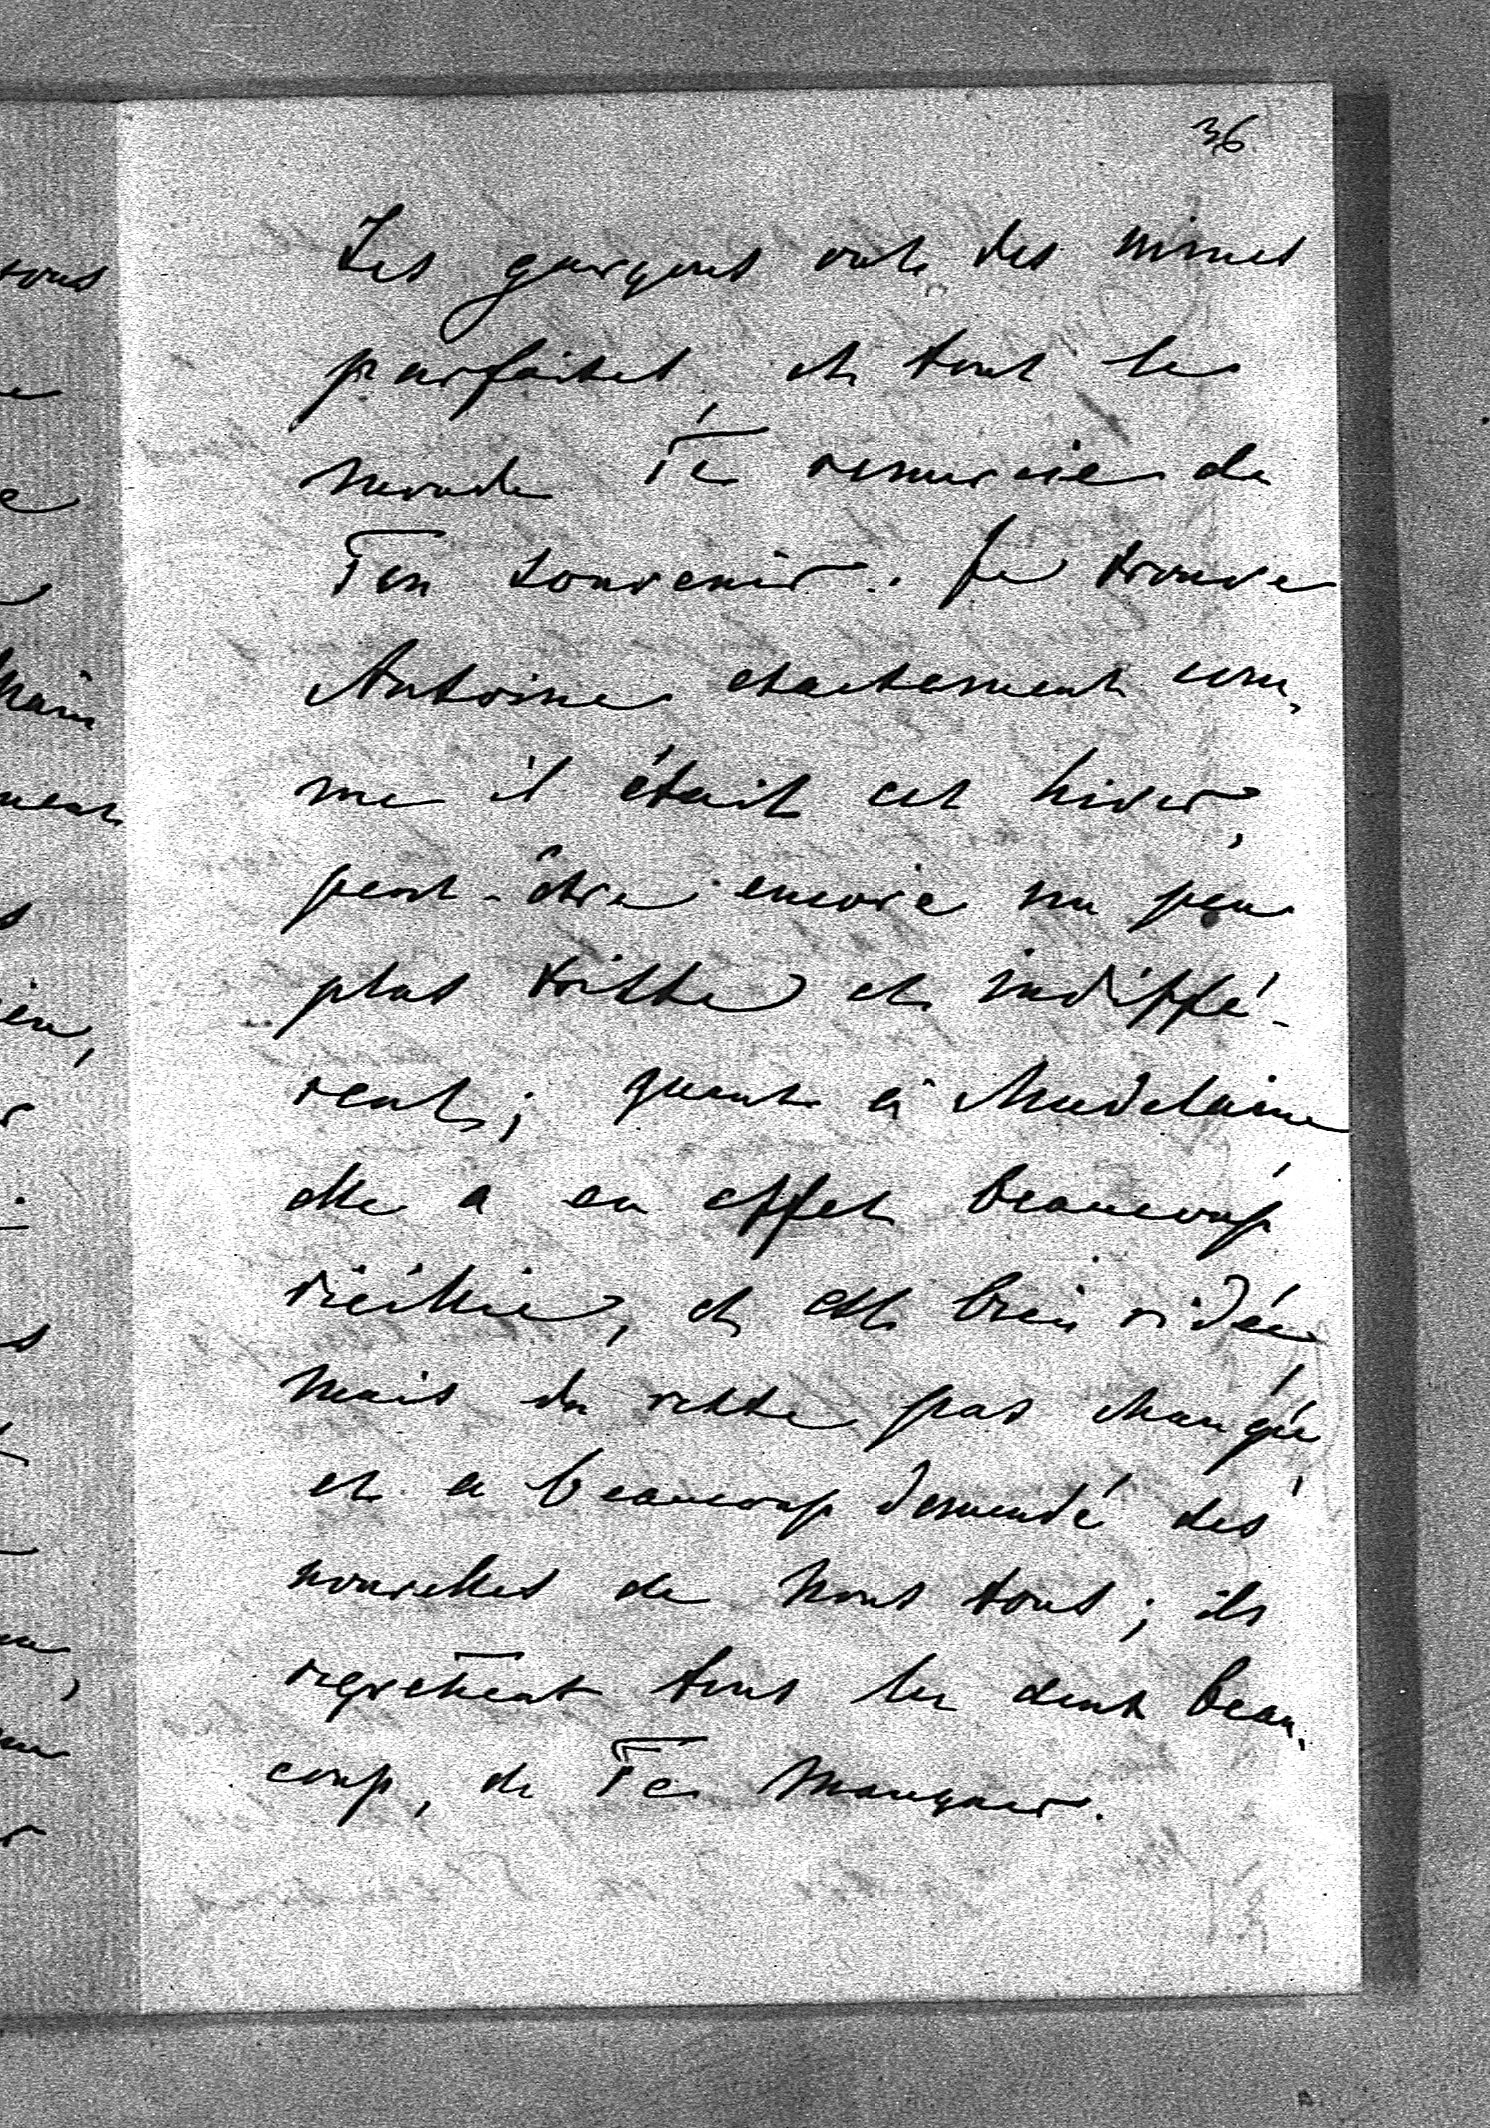 36
Les garçons ont des mines
parfaites, et tout le
monde Te remercie de
Ton souvenir. Je trouve
Antoine exactement com,
me il était cet hiver,
peut-être encore un peu
plus triste et indiffé-
rent; quant à Madelaine
elle a en effet beaucoup
vieillie, et est bien ridée,
mais du reste pas changée,
et a beaucoup demandé des
nouvelles de nous tous; ils
regrettent tous les deux beau,
coup, de Te manquer.